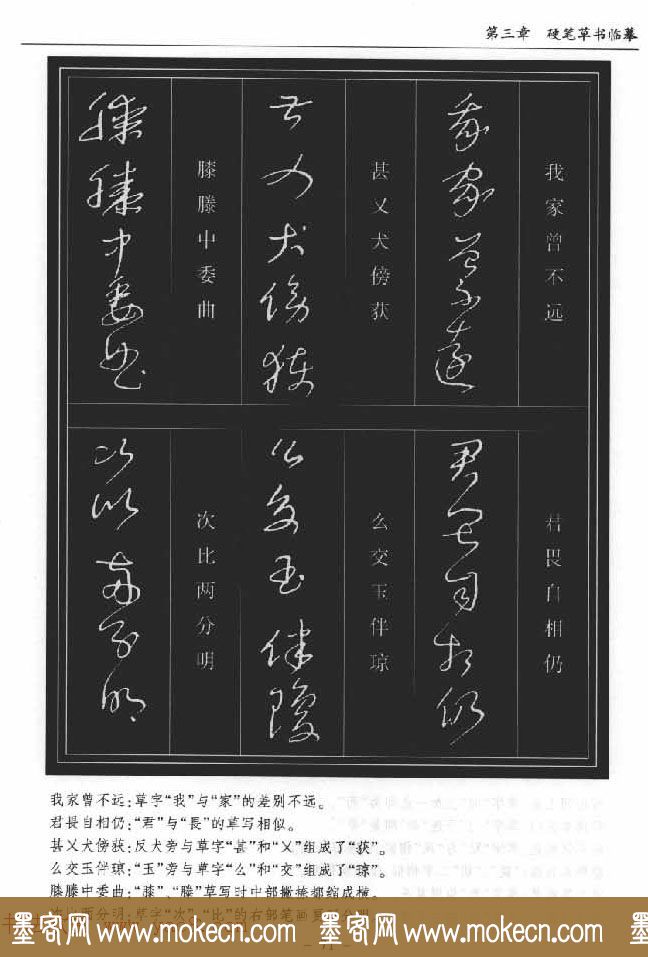 第三章 硬笔草书临摹
我家曾不远
我家曾不远
甚又犬傍获
甚又犬傍获
膝滕中委曲
膝滕中委曲
君畏自相仍
君畏自相仍
么交玉伴琼
么交玉伴琼
次比两分明
次比两分明
我家曾不远:草字“我”与“家”的差别不远。
君畏自相仍:“君”与“畏”的草写相似。
甚又犬傍获:反犬旁与草字“甚”和“乂”组成了“获”。
么交玉伴琼:“玉”旁与草字“么”和“交”组成了“琼”。
膝滕中委曲:“膝”、“滕”草写时中部撇捺都缩成横。
两分明:草字“次”、“比”的右部笔画
墨客网 www.mokecn.com 墨客网 www.mokecn.com